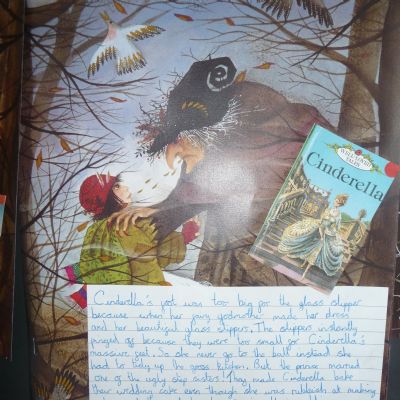 WELL-LOVED TALES
Cinderella
Cinderella's foot was too big for the glass slipper
because when her fairy godmother made her dress
and her beautiful glass slippers. The slippers instantly
pinged of because they were too small for Cinderella's
massive feet. So she never go to the ball instead she
had to tidy up the gross kitchen. But the prince married
one of the ugly step sisters! They made Cinderella bake
their wedding cake even though she was rubbish at making